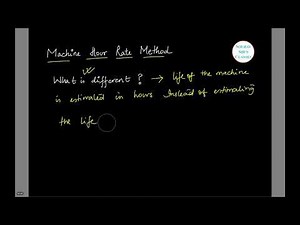 Machine Hour Rate Method
What is different ? → life of the machine
is estimated in hours instead of estimating
the life